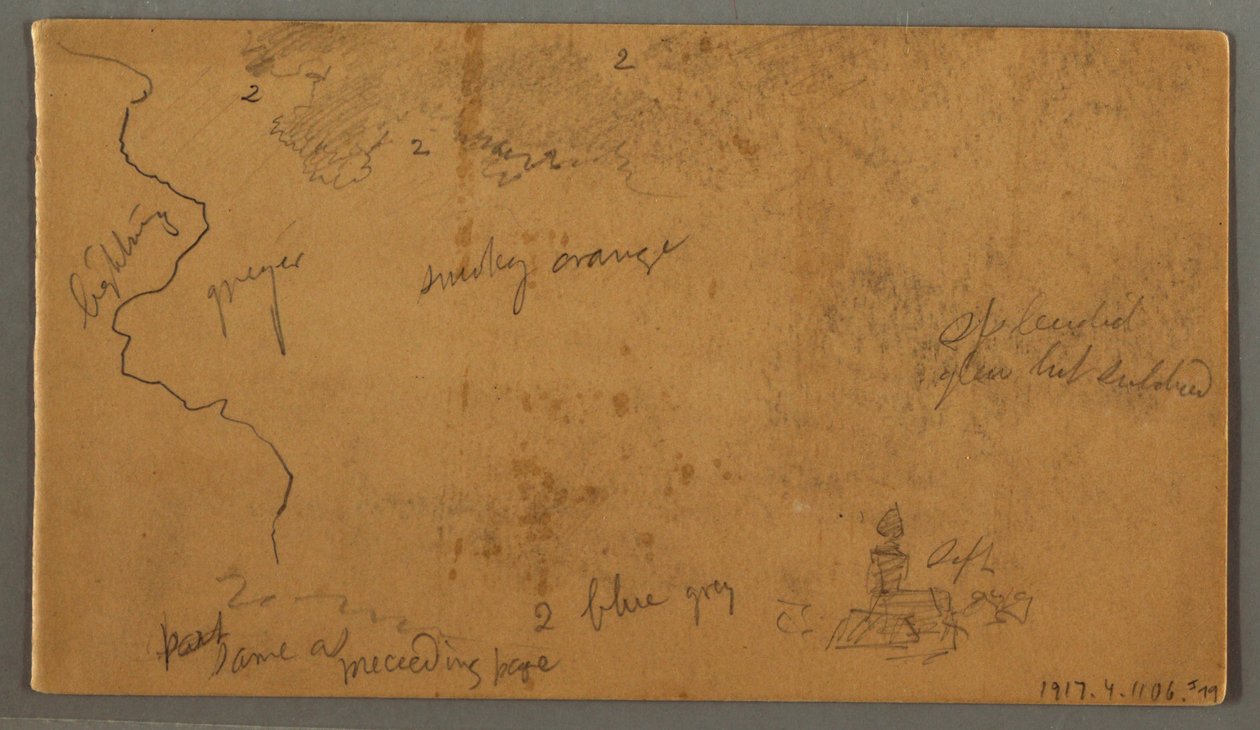 2
2
2
lightning
greyer
smoky orange
splendid
glow but subdued
soft
grey
2 blue grey
same as preceeding page
1917.4.1106.